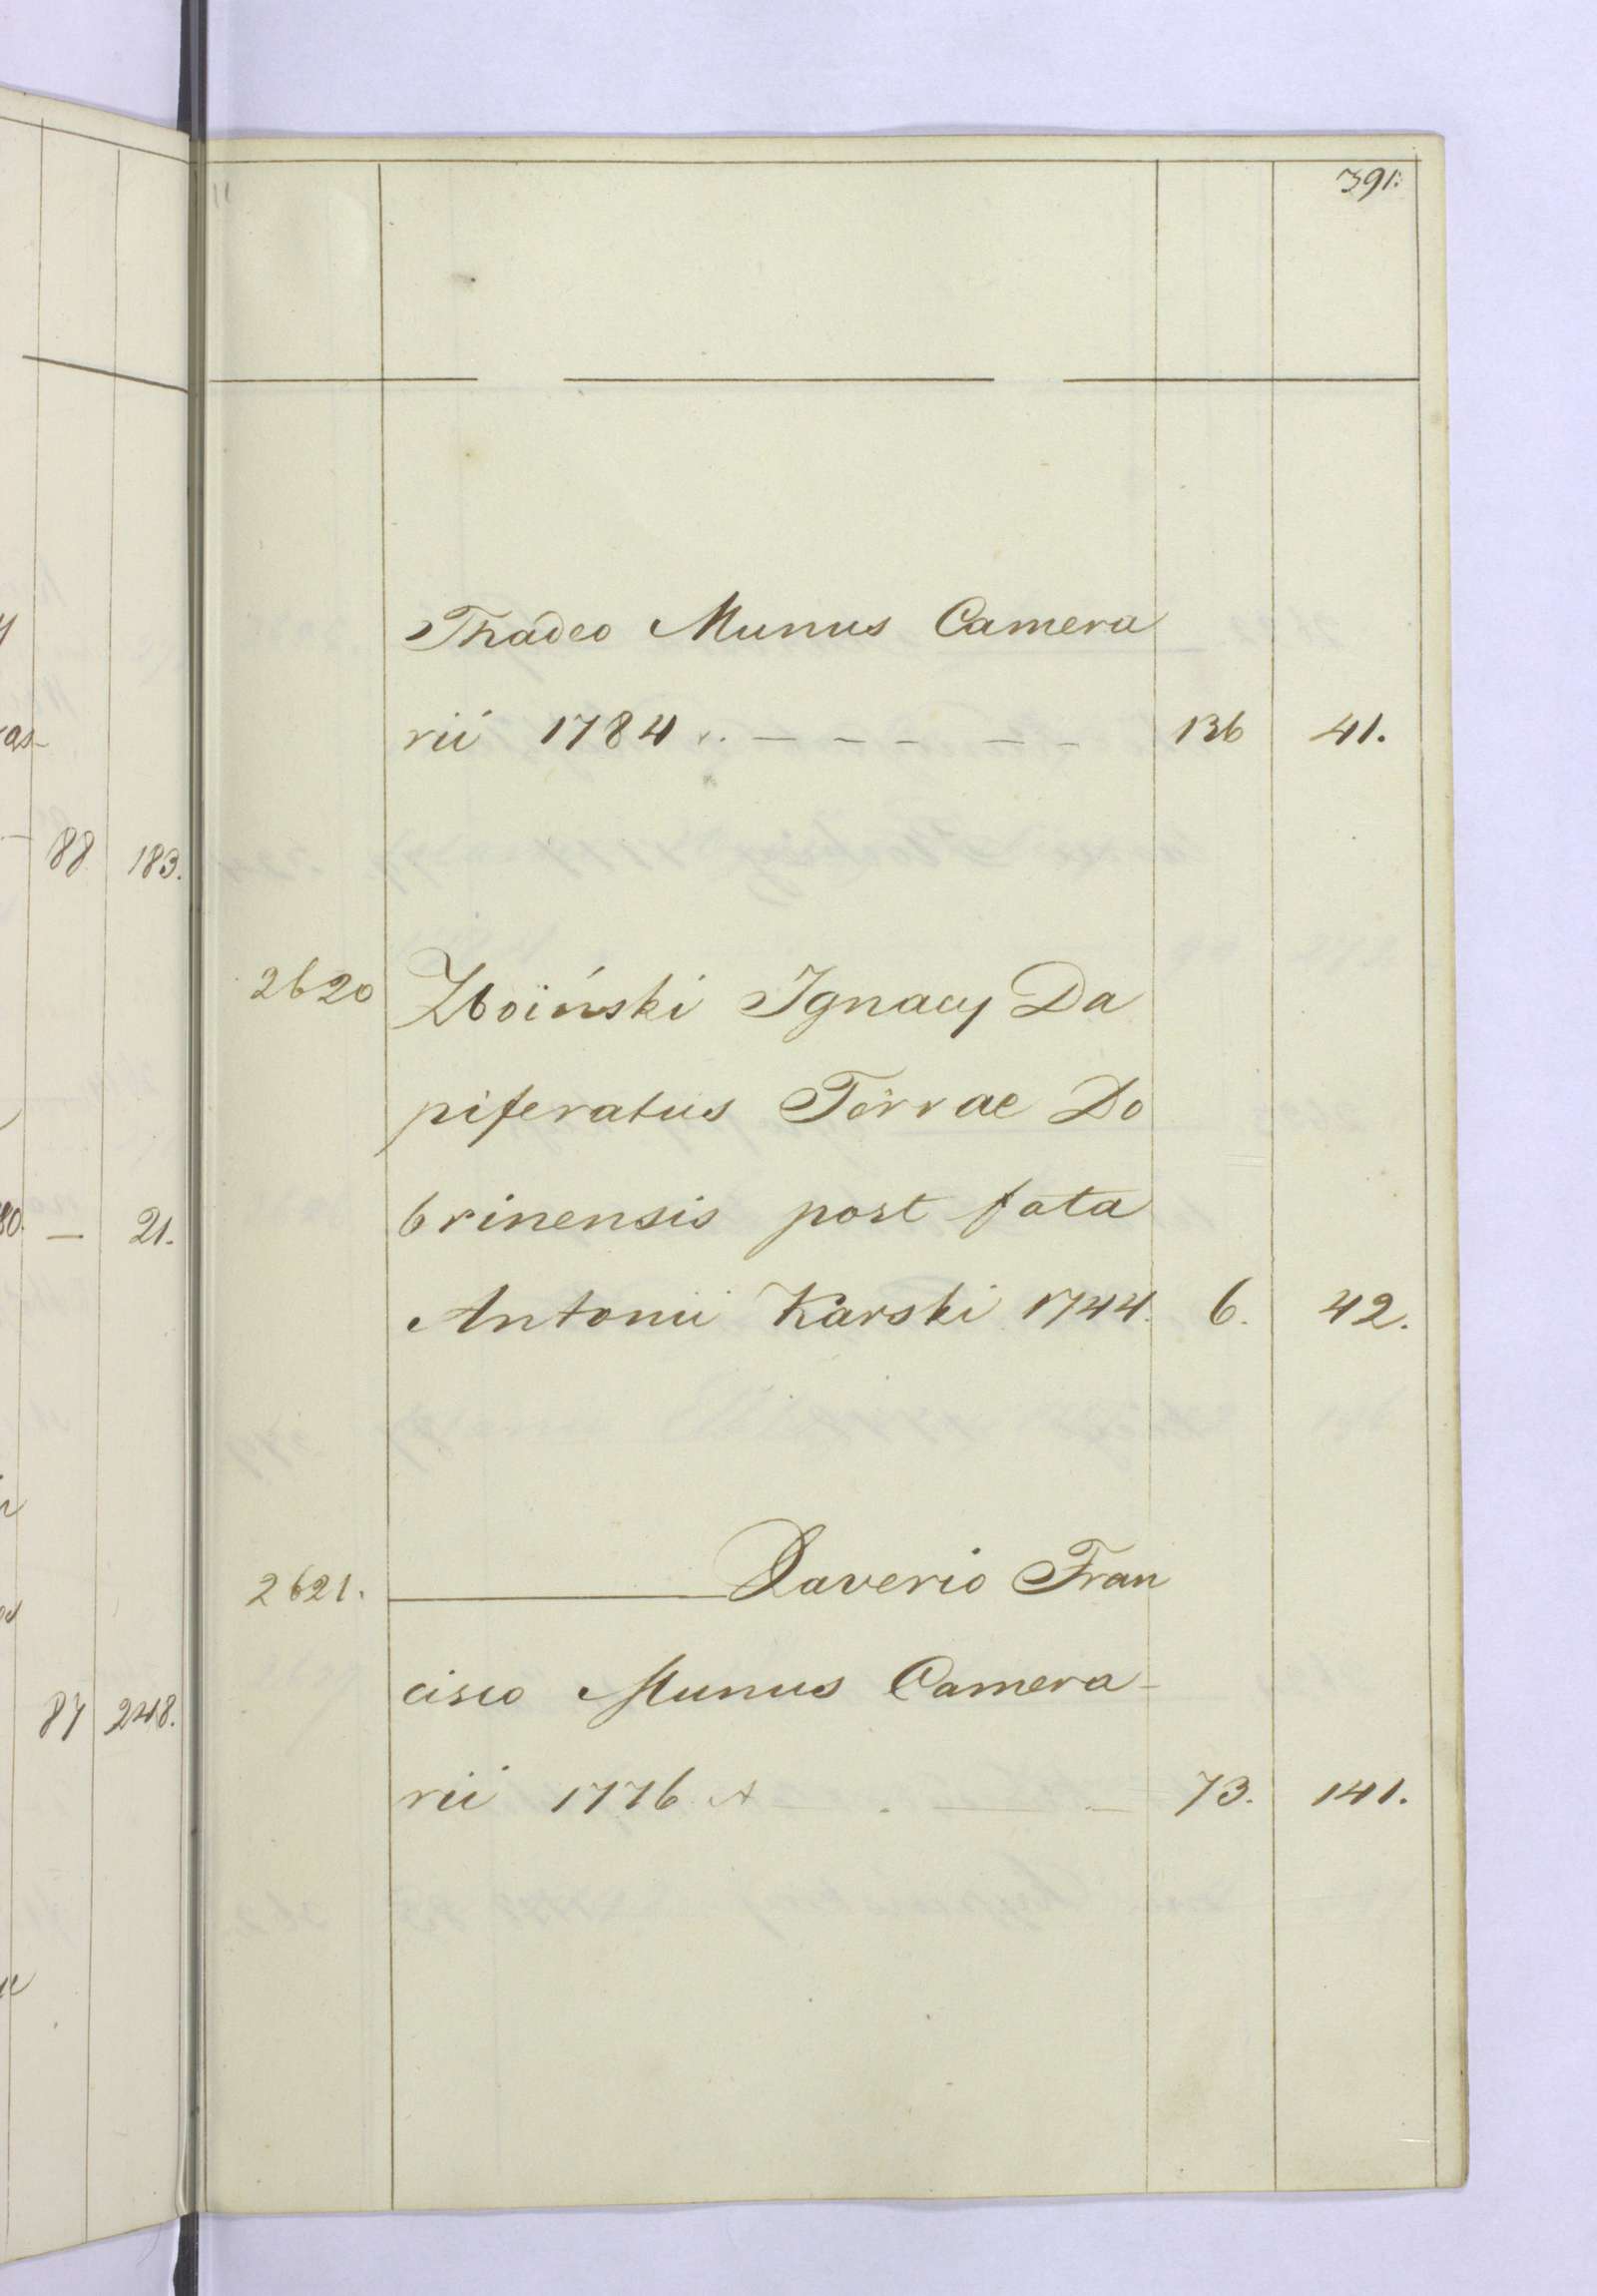 391.
Thadeo Munus Camera
rii 1784 136 41.
88 183.
2620 Zboiński Ignacy Da
piferatus Terrae Do
brinensis post fata
21.
Antonii Karski 1744. 6. 42.
2621. Xaverio Fran
cisco Munus Camera-
87 248.
rii 1776 73. 141.